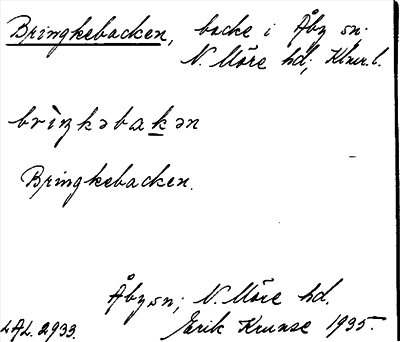 Bringkebacken, backe i Åby sn;
N. Möre hd; Klmr. l.
brìŋkəbakən
Bringkebacken.
Åby sn; N. Möre hd.
LAL. 2933. Erik Krunse 1935.